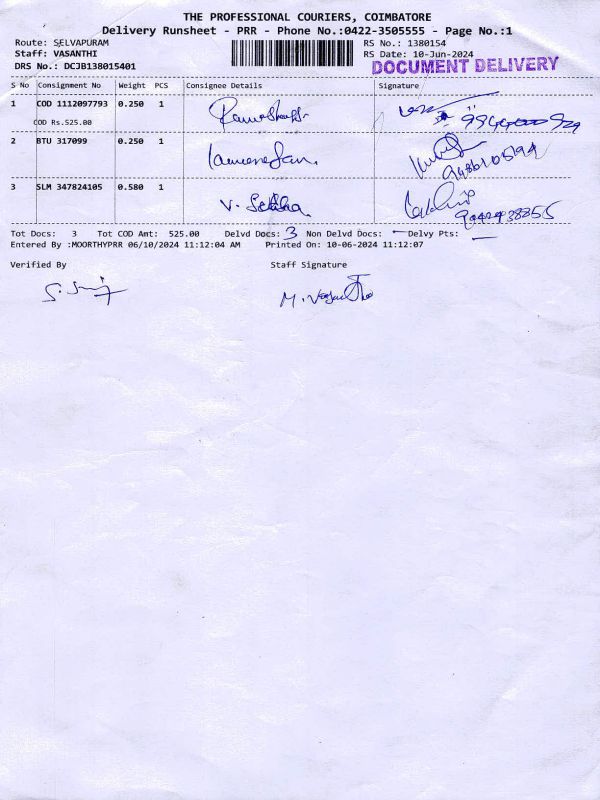 THE PROFESSIONAL COURIERS, COIMBATORE
Delivery Runsheet - PRR - Phone No.:0422-3505555 - Page No.:1
Route: SELVAPURAM RS No.: 1380154
Staff: VASANTHI RS Date: 10-Jun-2024
DRS No.: DCJB138015401 DOCUMENT DELIVERY
S No Consignment No Weight PCS Consignee Details Signature
1 COD 1112097793 0.250 1
COD Rs.525.00
2 BTU 317099 0.250 1
9486105194
3 SLM 347824105 0.580 1
V.
Tot Docs: 3 Tot COD Amt: 525.00 Delvd Docs: 3 Non Delvd Docs: - Delvy Pts: -
Entered By :MOORTHYPRR 06/10/2024 11:12:04 AM Printed On: 10-06-2024 11:12:07
Verified By Staff Signature